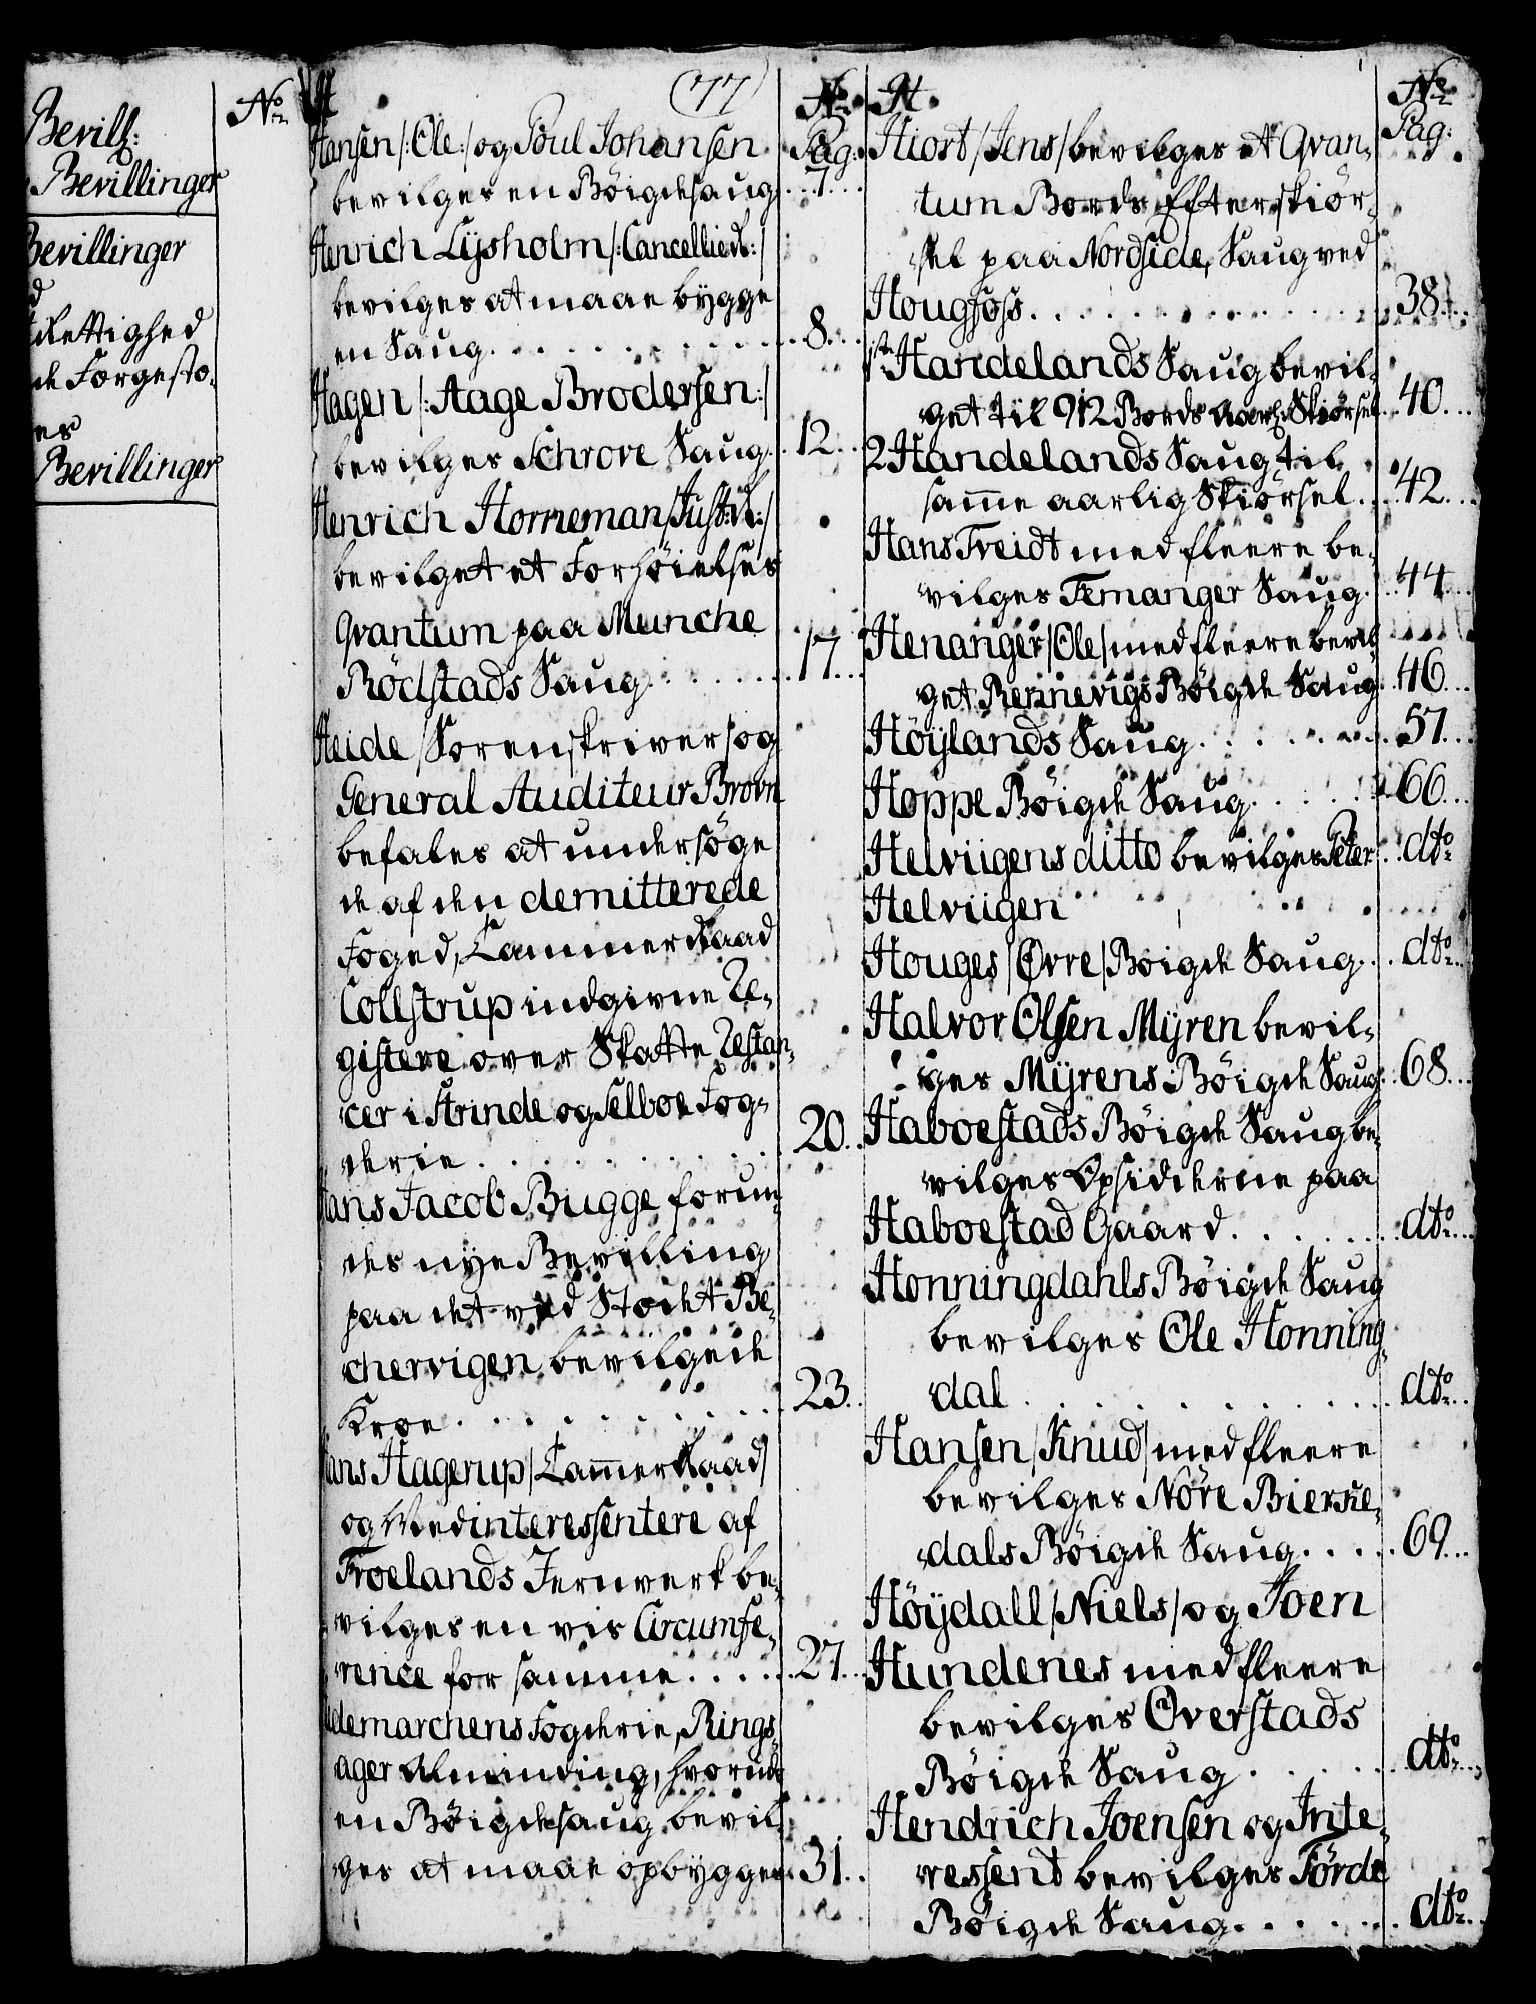 Bevilg:
Bevillinger
Bevillinger
d
Rettighed
de Forgesto-
es
Bevillinger
No
H.
(77)
No
Pag:
Hansen /:Ole:/ og Poul Johansen
bevilges en Böigdesaug . . 7 . .
Henrich Lÿsholm /:Cancellied:/
bevilges at maae bygge
en Saug. . . . . . . . . . 8. . .
Hagen /:Aage Brodersen:/
bevilges Schrove Saug. . 12. . .
Henrich Horneman /Just:R:/
bevilget et Forhöielses
Qvantum paa Munche
Rödstads Saug. . . . . . . 17. . .
Heide /Sorenskriver/ og
General Auditeur Brovn
befales at undersöge
de af den demitterede
Foged, Cammerraad
Collstrup indgivne Re-
gistere over Skatte Restan-
cer i Strinde og Selboe Fog-
derie. . . . . . . . . . . 20. .
Hans Jacob Bugge forun-
des nye Bevilling
paa det ved Stodet Be-
chervigen bevilgede
Kroe. . . . . . . . . . . 23. .
Hans Hagerup /Cammerraad/
og Medinteressentere af
Froelands Jernverk be-
vilges en vis Circumfe-
rence for samme. . . . . 27. . .
Hedemarchens Fogderie, Rings-
ager Alminding, hvorudi
en Böigdesaug bevil-
ges at maae opbygges. . 31. .
H.
No
Pag:
Hiort /Jens/ bevilges et Qvan-
tum Bords Efterskiör-
sel paa Nordside Saug ved
Hougfoss. . . . . . . . . . . . 38. . .
1ste Handelands Saug bevil-
get til 912 Bords Aarl. Skiörsel . . 40. . .
2 Handelands Saug til
samme aarlig Skiörsel. . . 42. . .
Hans Treidt med fleere be-
vilges Femanger Saug. . . 44. . .
Henanger /Ole/ med fleere bevil-
get Rennevigs Böigde Saug. . 46. . .
Höÿlands Saug. . . . . . . . 57. . .
Hoppe Böigde Saug. . . . . 66. . .
Helviigens ditto bevilges Peter . . dto
Helviigen
Houges /Øvre/ Böigde Saug. . . dto. .
Halvor Olsen Mÿren bevil-
ges Mÿrens Böigde Saug. . 68. . .
Haboestads Böigde Saug be-
vilges Opsidderne paa
Haboestad Gaard. . . . . . . dto. . .
Honningdahls Böigde Saug
bevilges Ole Honning-
dal. . . . . . . . . . . . . dto. .
Hansen /Knud/ med fleere
bevilges Nöre Bierke-
dals Böigde Saug. . . . . 69. . .
Höÿdall /Niels/ og Joen
Hundenes med fleere
bevilges Overstads
Böigde Saug. . . . . . . dto. . .
Hendrich Joensen og Inte-
ressent bevilges Förde
Böigde Saug. . . . . . . . dto. .